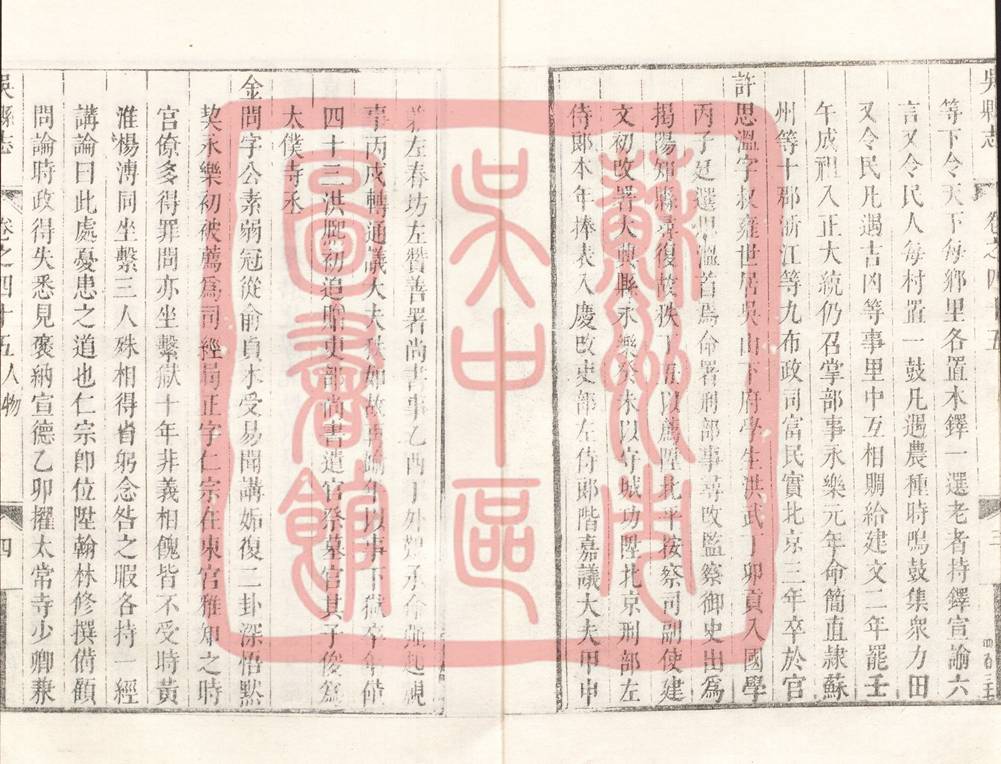 吳縣志 卷之四十五 三
等下令天下每鄉里各置木鐸一選老者持鐸宣諭六
言又令民人每村置一鼓凡遇農種時鳴鼓集衆力田
又令民凡遇吉凶等事里中互相賙給建文二年罷壬
午成祖入正大統仍召掌部事永樂元年命簡直隸蘇
州等十郡浙江等九布政司富民實北京三年卒於官
許思溫字叔雍世居吳山下府學生洪武丁卯貢入國學
丙子廷選思溫首爲命署刑部事尋改監察御史出爲
揭陽知縣尋復故秩丁 以薦陞北平按察司副使建
文初改署大興縣永樂癸未以守城功陞北京刑部左
侍郎本年捧表入慶改吏部左侍郎階嘉議大夫甲申
兼左春坊左贊善署尚書事乙酉丁外艱承命強起視
事丙戌轉通議大夫秩如故 年以事下獄卒年僅
四十三洪熙初追贈吏部尚書遣官祭墓官其子俊爲
太僕寺丞
金問字公素弱冠從俞貞木受易聞講姤復二卦深悟默
契永樂初被薦爲司經局正字仁宗在東宮雅知之時
宮僚多得罪問亦坐繫獄十年非義相餽皆不受時黃
淮楊溥同坐繫三人殊相得省躬念咎之暇各持一經
講論曰此處憂患之道也仁宗卽位陞翰林修撰備顧
問論時政得失悉見褒納宣德乙卯擢太常寺少卿兼
吳縣志 卷之四十五 人物 四
蘇州市
吳中區
圖書館